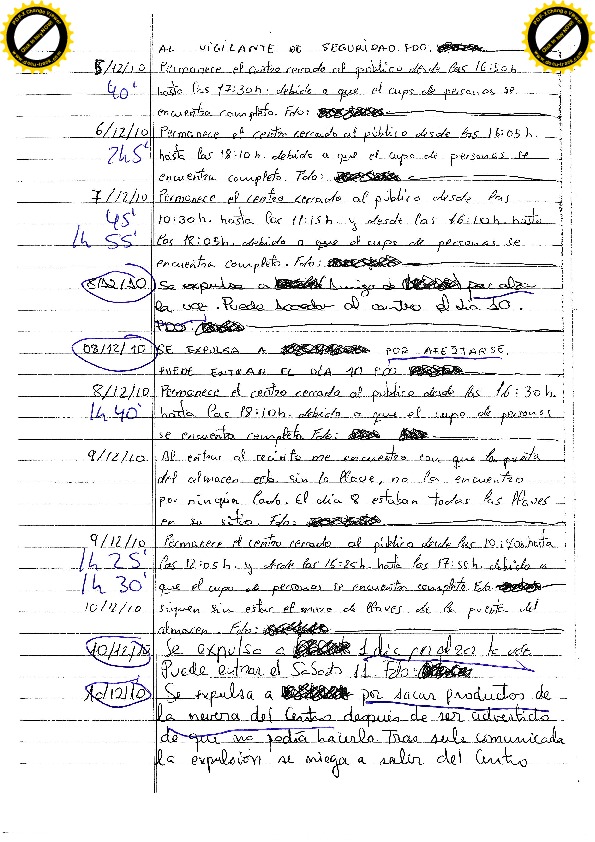 AL VIGILANTE DE SEGURIDAD. FDO.
5/12/10 Permanece el centro cerrado al público desde las 16:50h
40' hasta las 17:30h. debido a que el cupo de personas se
encuentra completo. Fdo:
6/12/10 Permanece el centro cerrado al público desde las 16:05h.
2h5' hasta las 18:10h. debido a que el cupo de personas se
encuentra completo. Fdo:
7/12/10 Permanece el centro cerrado al público desde las
45' 10:30h. hasta las 11:15h. y desde las 16:10h. hasta
1h 55' las 18:05h. debido a que el cupo de personas se
encuentra completo. Fdo:
8/12/10 Se expulsa a Amigo de por alzar
la voz. Puede acceder al centro el día 10.
FDO:
08/12/10 SE EXPULSA A POR AFEITARSE.
PUEDE ENTRAR EL DÍA 10 FDO
8/12/10 Permanece el centro cerrado al público desde las 16:30h.
1h 40' hasta las 18:10h. debido a que el cupo de personas
se encuentra completo. Fdo:
9/12/10 Al entrar al recinto me encuentro con que la puerta
del almacen está sin la llave, no la encuentro
por ningún lado. El día 8 estaban todas las llaves
en su sitio. Fdo:
9/12/10 Permanece el centro cerrado al público desde las 10:40h hasta
1h 25' las 12:05h. y desde las 16:25h. hasta las 17:55h. debido a
1h 30' que el cupo de personas se encuentra completo. Fdo.
10/12/10 siguen sin estar el juego de llaves de la puerta del
almacen. Fdo:
10/12/10 Se expulsa a 1 día por alzar la voz.
Puede entrar el Sábado 11 Fdo:
10/12/10 Se expulsa a por sacar productos de
la nevera del Centro después de ser advertido
de que no podía hacerlo Tras serle comunicada
la expulsión se niega a salir del Centro